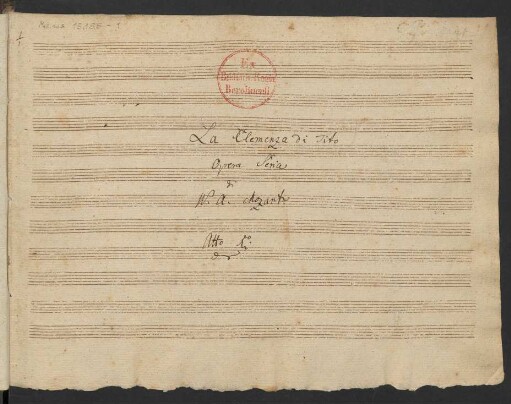 Ex
Biblioth. Regia
Berolinensi
La Clemenza di Tito
Opera Seria
di
W. A. Mozart
Atto 1mo